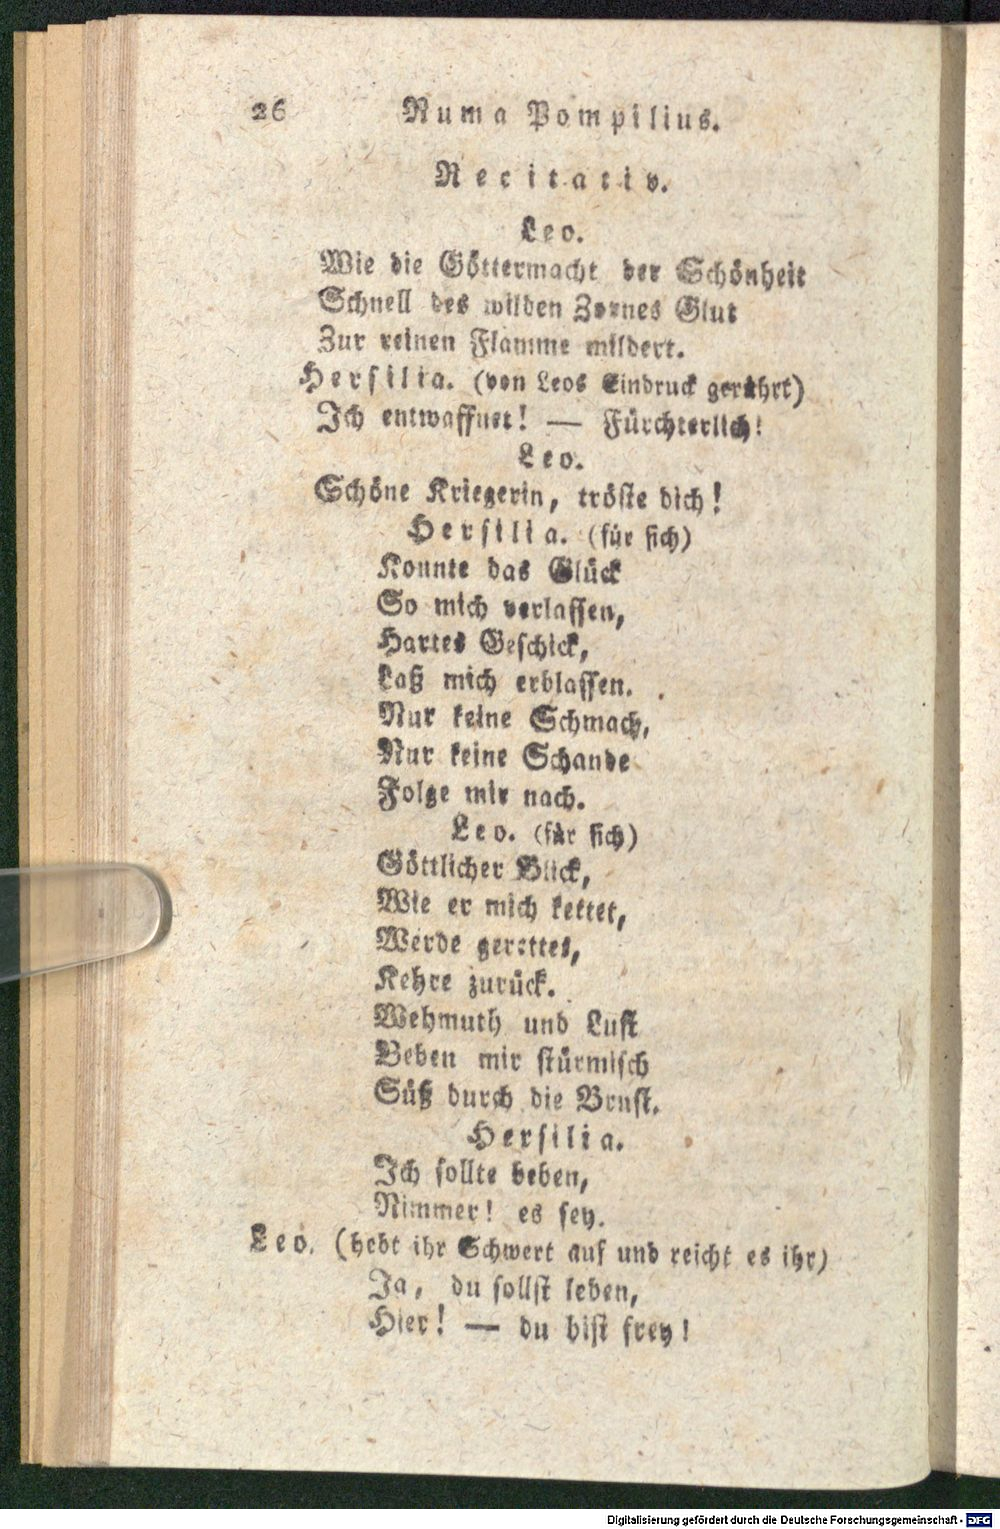 26 Numa Pompilius.
Recitativ.
Leo.
Wie die Göttermacht der Schönheit
Schnell des wilden Zornes Glut
Zur reinen Flamme mildert.
Hersilia. (von Leos Eindruck gerührt)
Ich entwaffnet! — Fürchterlich!
Leo.
Schöne Kriegerin, tröste dich!
Hersilia. (für sich)
Konnte das Glück
So mich verlassen,
Hartes Geschick,
Laß mich erblassen.
Nur keine Schmach,
Nur keine Schande
Folge mir nach.
Leo. (für sich)
Göttlicher Blick,
Wie er mich kettet,
Werde gerettet,
Kehre zurück.
Wehmuth und Lust
Beben mir stürmisch
Süß durch die Brust.
Hersilia.
Ich sollte beben,
Nimmer! es sey.
Leo. (hebt ihr Schwert auf und reicht es ihr)
Ja, du sollst leben,
Hier! — du bist frey!
Digitalisierung gefördert durch die Deutsche Forschungsgemeinschaft - DFG